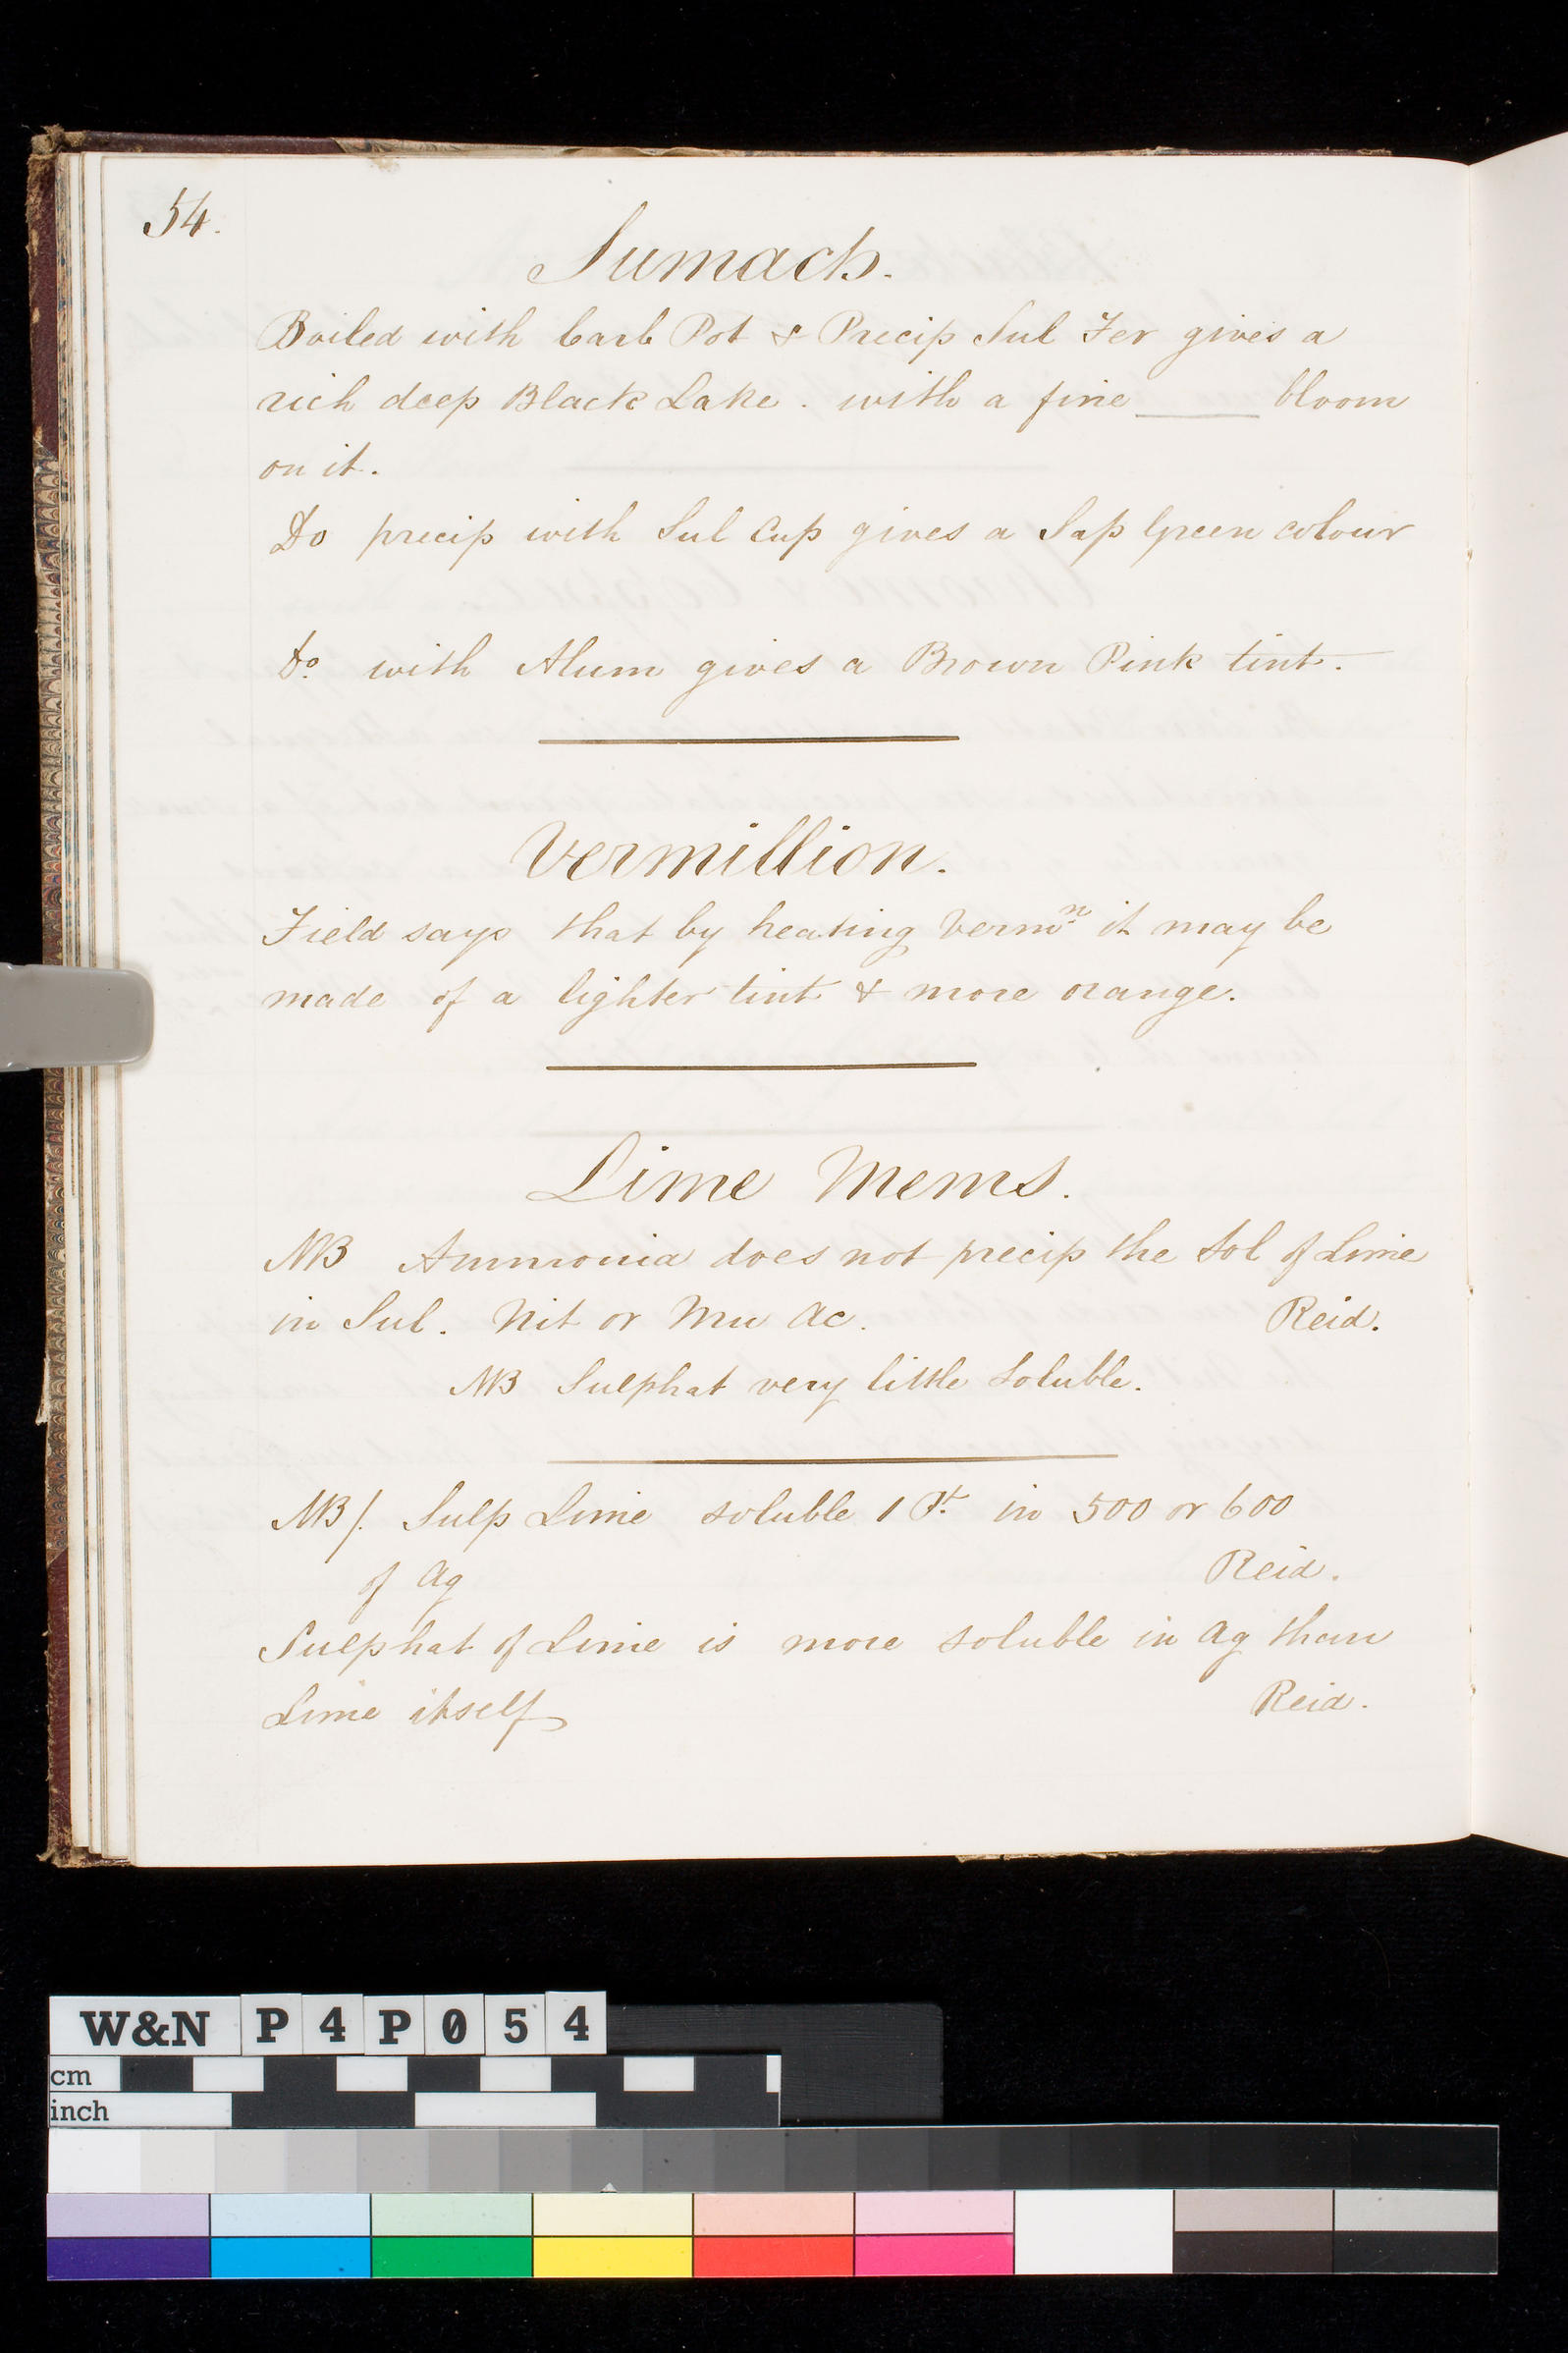 54.
Sumach.
Boiled with Carb Pot & Precip Sul Fer gives a
rich deep Black Lake. with a fine ____ bloom
on it.
Do precip with Sul Cup gives a Sap Green colour
do. with Alum gives a Brown Pink tint.
Vermillion.
Field says that by heating Vermn it may be
made of a lighter tint & more orange.
Lime Mems.
NB Ammonia does not precip the Sol of Lime
in Sul. Nit or Mu Ac. Reid.
NB Sulphat very little Soluble.
NB/. Sulp Lime soluble 1 Pt. in 500 or 600
of Aq Reid.
Sulphat of Lime is more soluble in Aq than
Lime itself Reid.
W&N P4P054
cm
inch